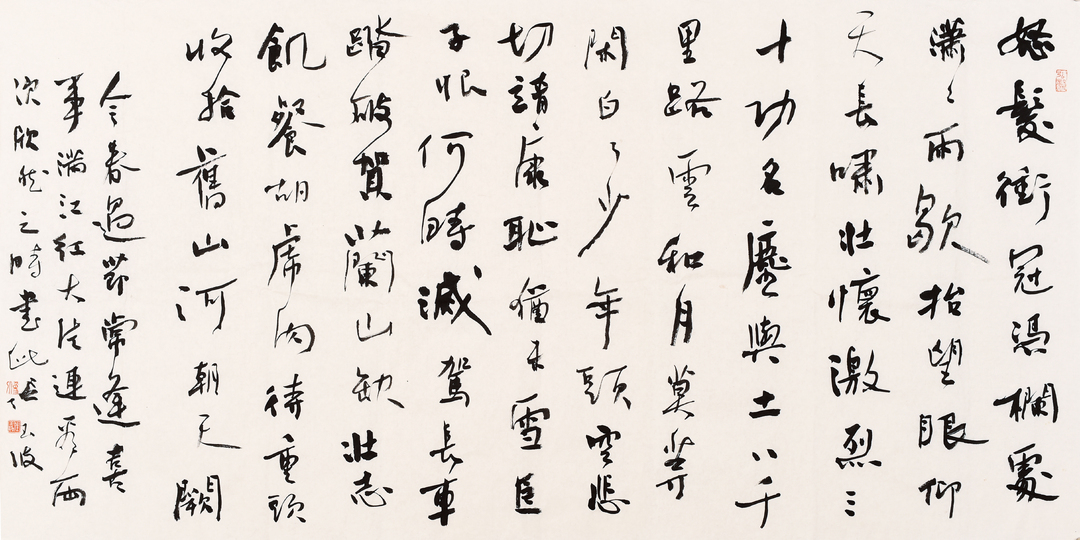 怒髮衝冠憑欄處
瀟〻雨歇抬望眼仰
天長嘯壯懷激烈三
十功名塵與土八千
里路雲和月莫等
閑白了少年頭空悲
切靖康恥猶未雪臣
子恨何時滅駕長車
踏破賀蘭山缺壯志
飢餐胡虜肉待重頭
收拾舊山河朝天闕
今春過節常逢喜
事滿江紅大連看兩
次欣然之時書此玉波